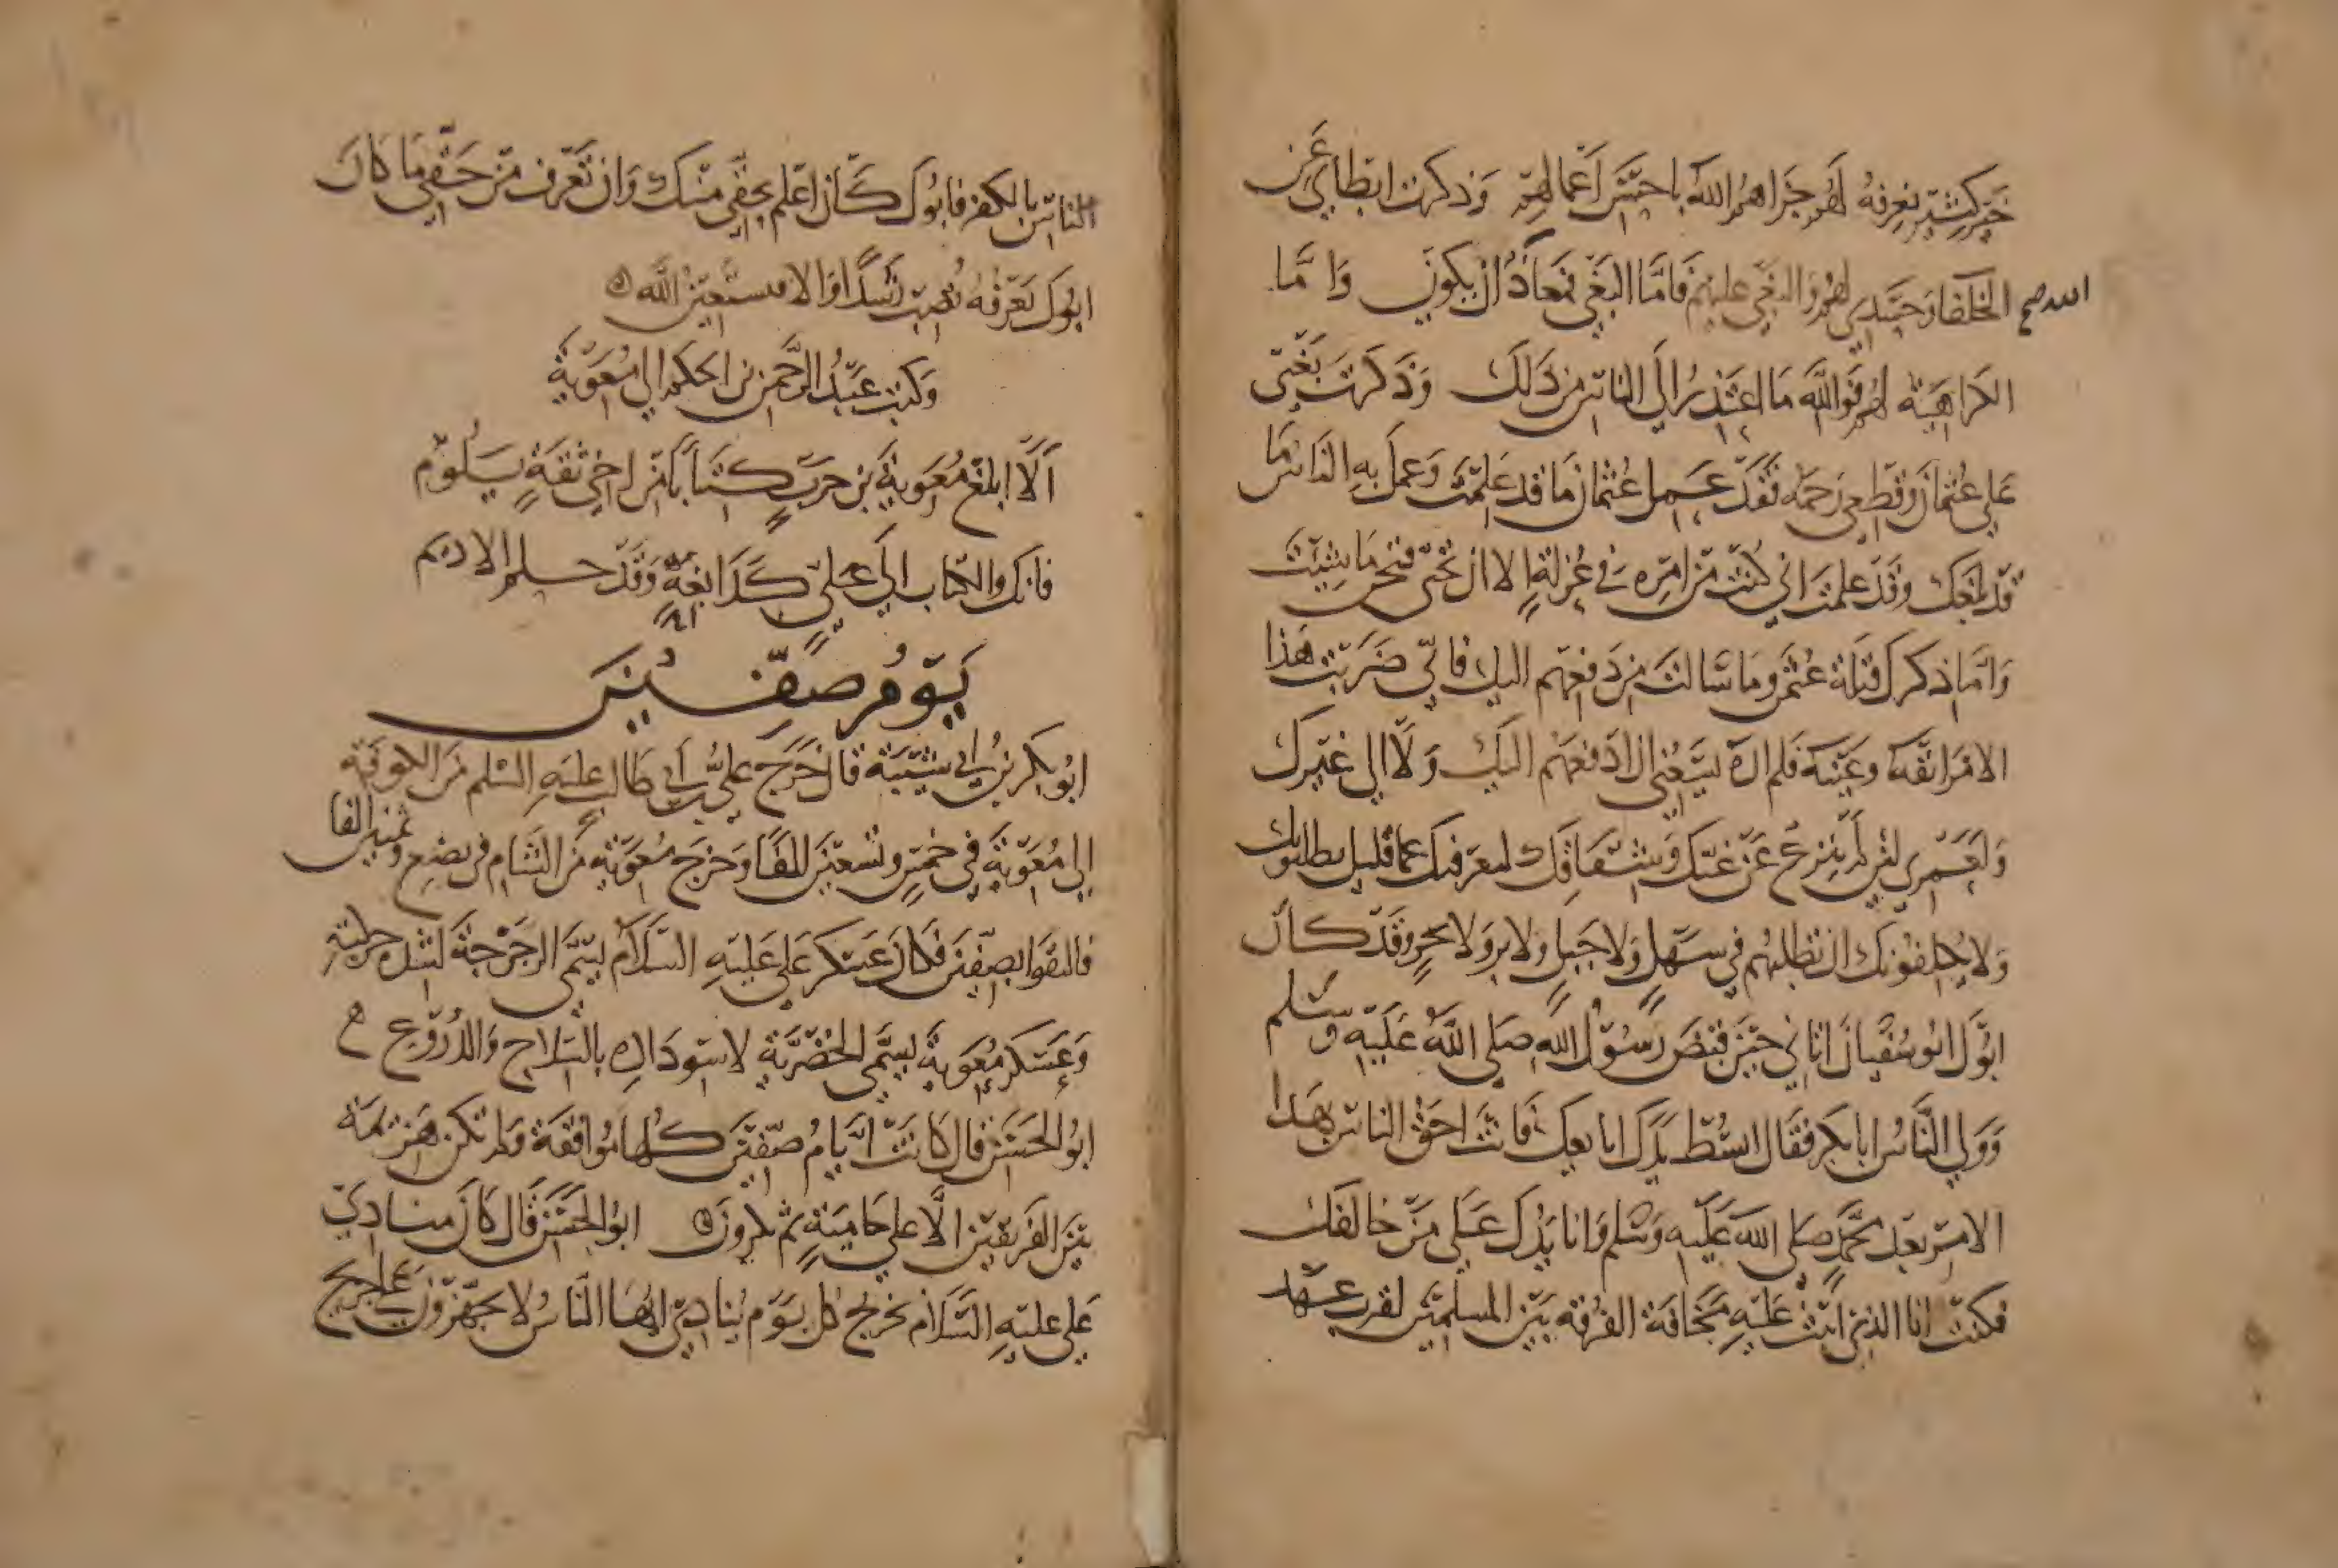 خير كثير نعرفه لهم جزاهم الله باحسن اعمالهم وذكرت ابطاي عن
الخلفا وحسدي لهم والبغي عليهم فاما البغي فمعاذ ان يكون واما
الله صح
الكراهية لهم فوالله ما اعتذر الى الناس من ذلك وذكرت بغيي
على عثمان وقطعي رحمه فقد عمل عثمان ما قد علمت وعمل به الناس ما
قد بلغك وقد علمت اني كنت من امره في عزلة الا ان تجنى فتجن ما شيت
واما ذكرك قتلة عثمن وما سالت من دفعهم اليك فاني ضربت هذا
الامر انفه وعينه فلم اره يسعني ان ادفعهم اليك ولا الى غيرك
ولعمري لئن لم تنزع عن غيك وشقاقك لتعرفنك عما قليل يطلبونك
ولا يكلفونك ان تطلبهم في سهل ولا جبل ولا بر ولا بحر وقد كان
ابوك ابو سفيان اتاني حين قبض رسول الله صلى الله عليه وسلم
وولي الناس ابا بكر فقال ابسط يدك ابايعك فانت احق الناس بهذا
الامر بعد محمد صلى الله عليه وسلم وانا يدك على من خالفك
فكنت انا الذي ابيت عليه مخافة الفرقة بين المسلمين لقرب عهد
الناس بالكفر فابوك كان اعلم بحقي منك وان تعرف من حقي ما كان
ابوك يعرفه تصب رشدك والا فسنستعين الله ه
وكتب عبد الرحمن بن الحكم الى معوية
الا ابلغ معوية بن حرب كتابا من اخي ثقة يلوم
فانك والكتاب الى علي كدابغة وقد حلم الاديم
يوم صفين
ابو بكر بن ابي شيبة قال خرج علي بن ابي طالب عليه السلم من الكوفة
الى معوية في خمس وتسعين الفا وخرج معوية من الشام في بضع وثمنين الفا
فالتقوا بصفين فكان عسكر علي عليه السلام يسمى الزجزجة لشدة جلبته
وعسكر معوية يسمى الخضرية لاسوداده بالسلاح والدروع
ابو الحسن قال كانت ايام صفين كلها موافقة ولم تكن هزيمة
بين الفريقين الا على حامية ثم يكرون ه ابو الحسن قال كان منادي
علي عليه السلام يخرج كل يوم ينادي ايها الناس لا يجهزون على جريح